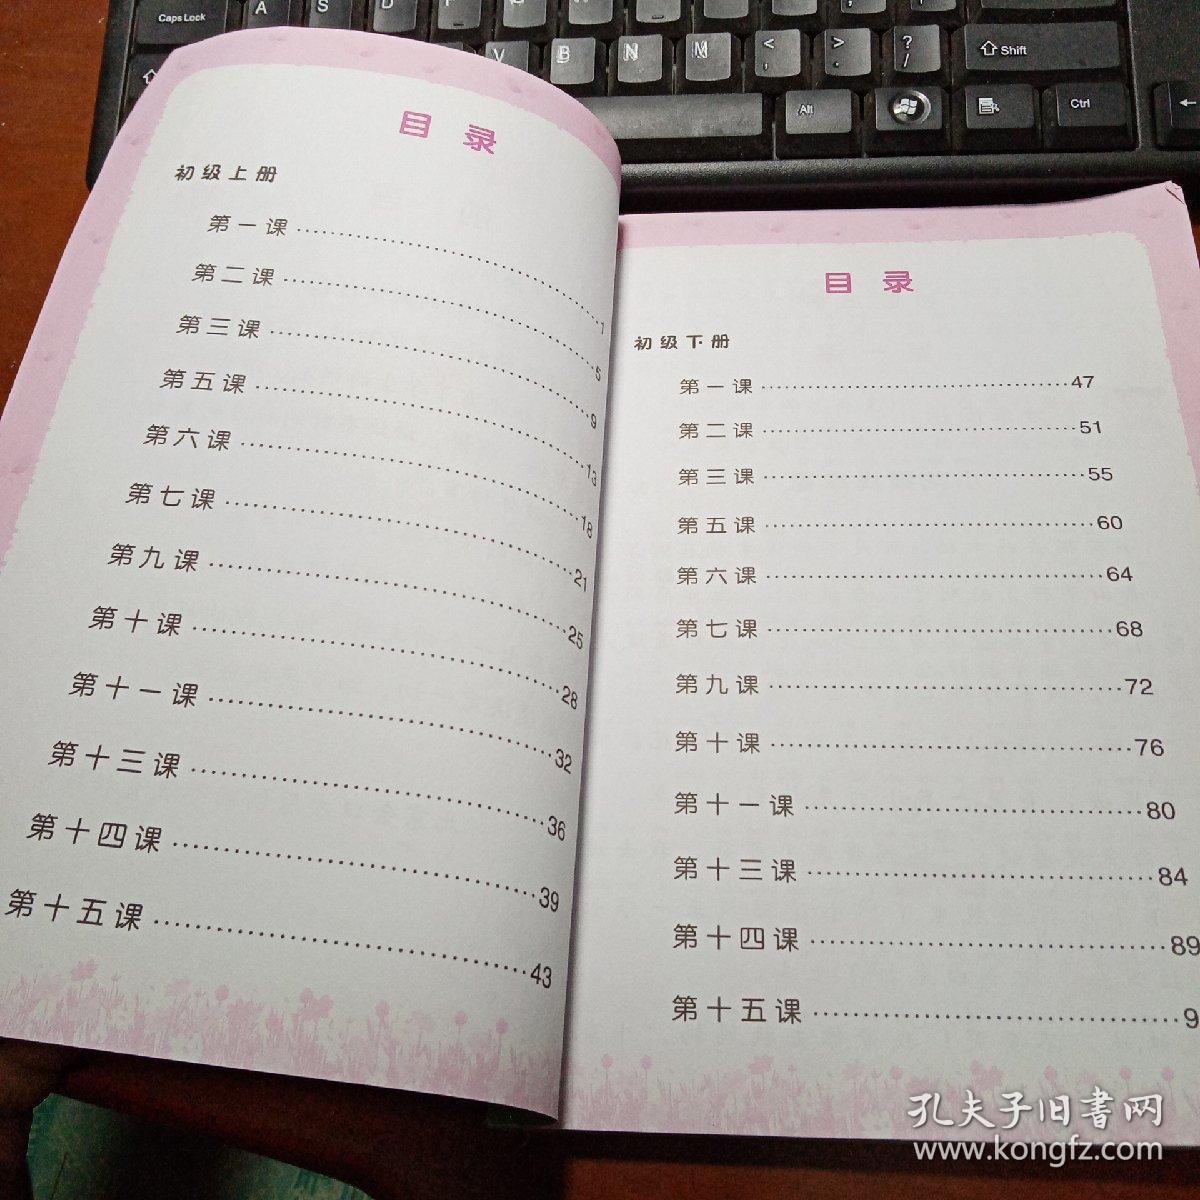 Caps Lock
A
S
D
F
V
B
N
M
<
,
>
.
?
/
Shift
Alt
Ctrl
目录
初级上册
第一课……1
第二课……5
第三课……9
第五课……13
第六课……18
第七课……21
第九课……25
第十课……28
第十一课……32
第十三课……36
第十四课……39
第十五课……43
目录
初级下册
第一课……47
第二课……51
第三课……55
第五课……60
第六课……64
第七课……68
第九课……72
第十课……76
第十一课……80
第十三课……84
第十四课……89
第十五课……9
孔夫子旧书网
www.kongfz.com